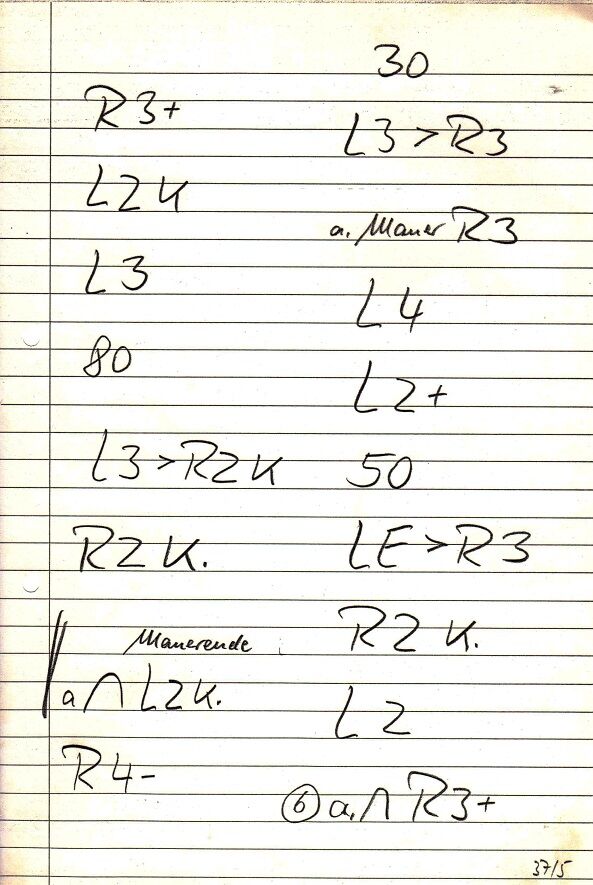 R3+
L2K
L3
80
L3>R2K
R2K.
Mauerende
a ∩ L2K.
R4-
30
L3>R3
a. Mauer R3
L4
L2+
50
LE>R3
R2K.
L2
⑥ a. ∩ R3+
37/5